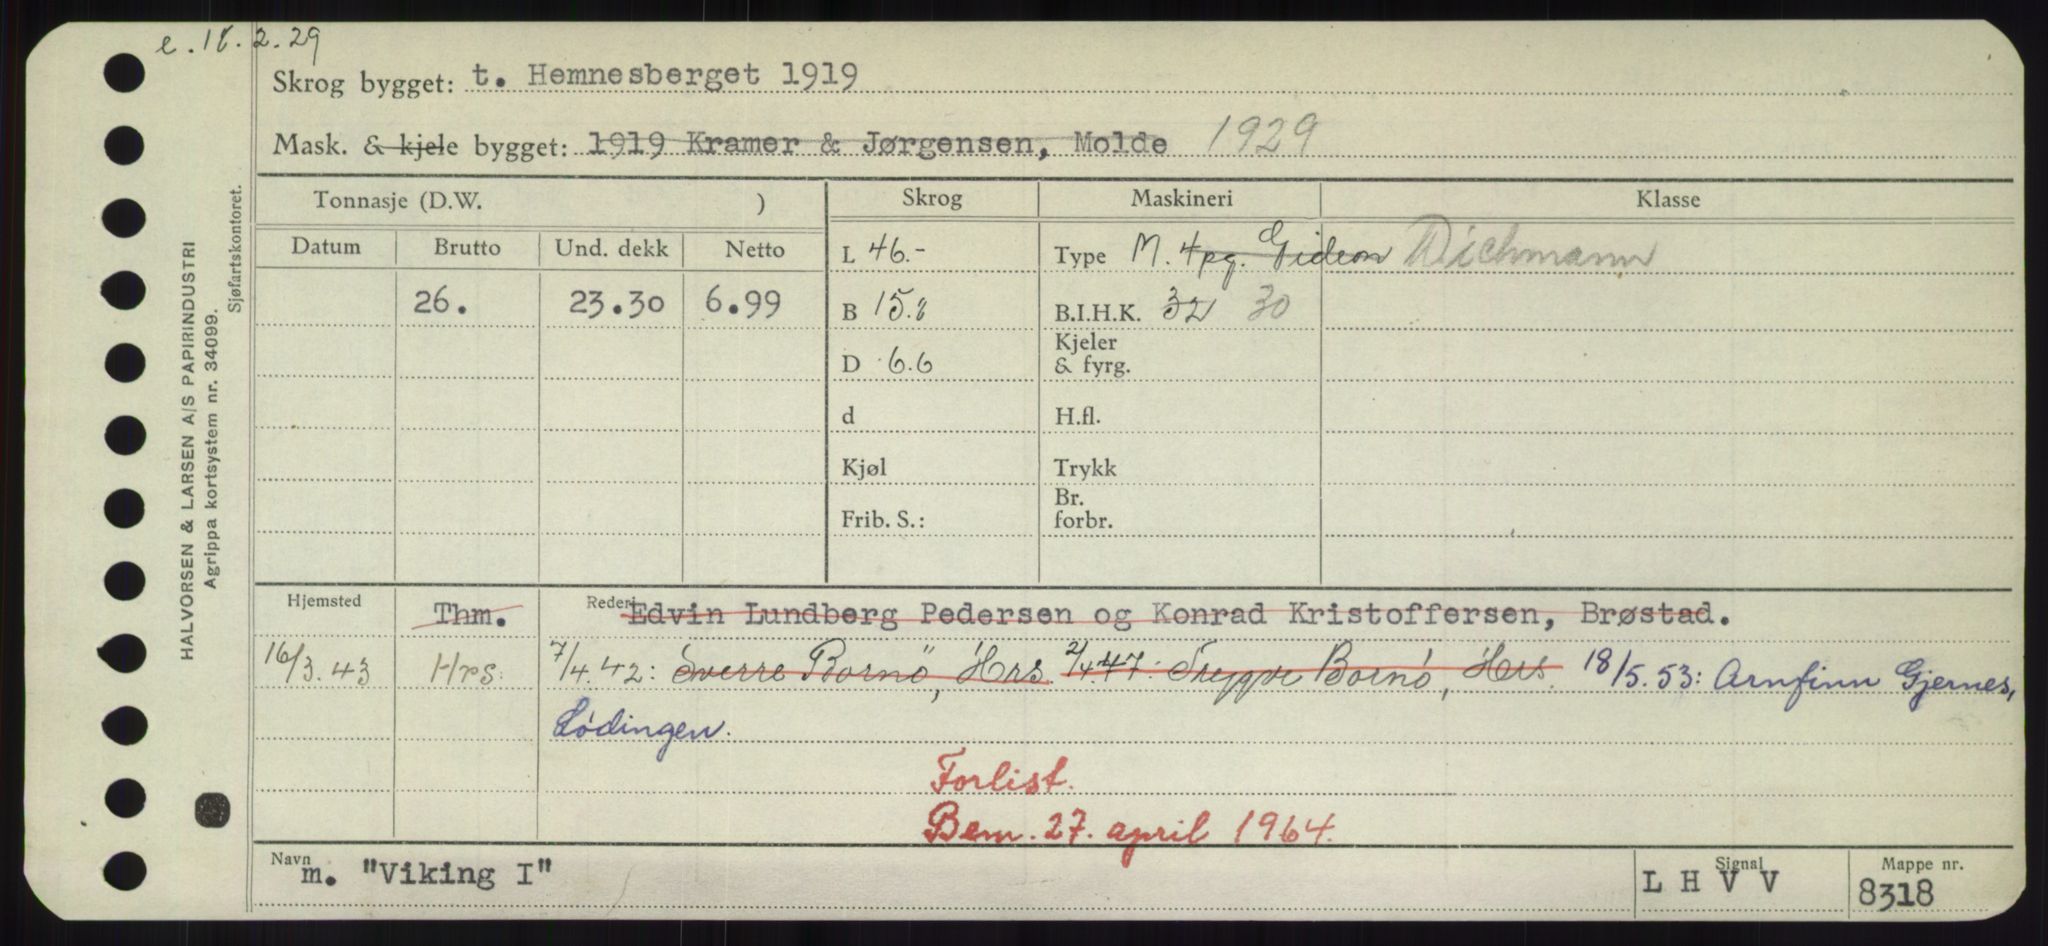 e. 18.2.29
Skrog bygget: t. Hemnesberget 1919
Mask. & kjele bygget: 1919 Kramer & Jørgensen, Molde 1929
Tonnasje (D.W. ) Skrog Maskineri Klasse
Datum Brutto Und. dekk Netto L 46.- Type M. 4pg. Gideon Wichmann
26. 23.30 6.99 B 15.8 B.I.H.K. 32 30
Kjeler
D 6.6 & fyrg.
d H.fl.
Kjøl Trykk
Br.
Frib. S.: forbr.
Hjemsted Thm. Rederi Edvin Lundberg Pedersen og Konrad Kristoffersen, Brøstad.
16/3.43 Hrs. 7/4.42: Sverre Bornö, Hrs. 2/4 47: Trygve Bornö, Hrs. 18/5.53: Arnfinn Gjernes,
Lödingen.
Forlist.
Bem. 27. april 1964.
Navn m. "Viking I" Signal L H V V Mappe nr. 8318
HALVORSEN & LARSEN A/S PAPIRINDUSTRI
Agrippa kortsystem nr. 34099.
Sjøfartskontoret.